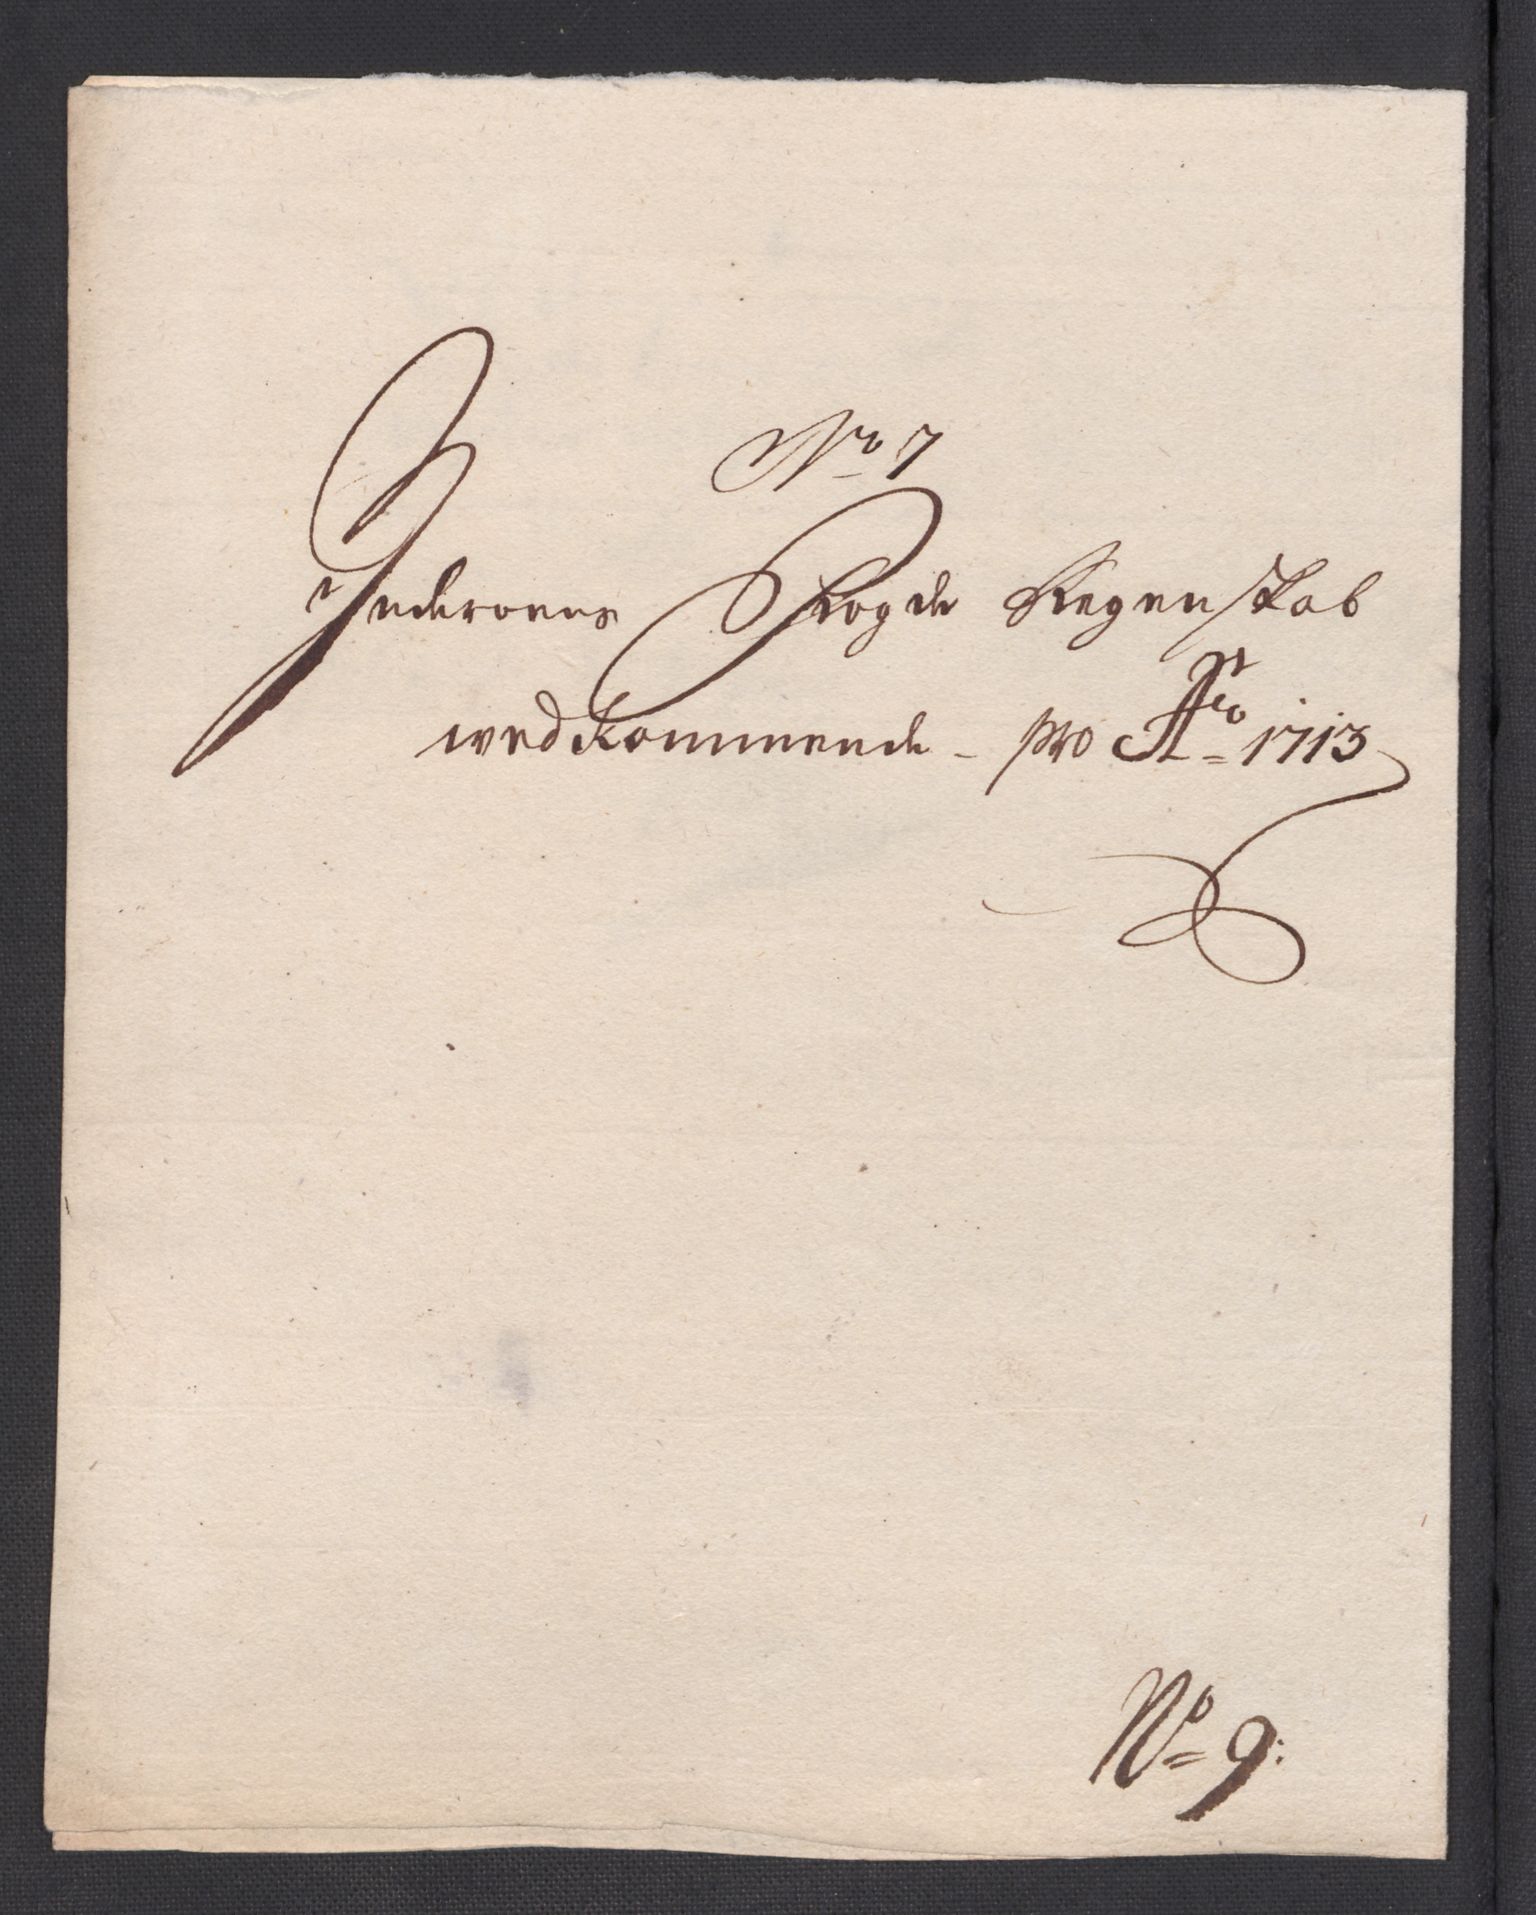 No 7
Inderøens Fogde Regenskab
wedkommende - pro Ao 1713
No 9: